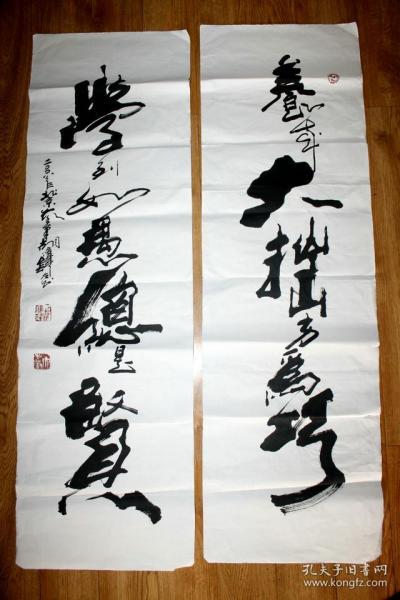 養成大拙方為巧
學到如愚總是賢
孔夫子旧书网
www.kongfz.com